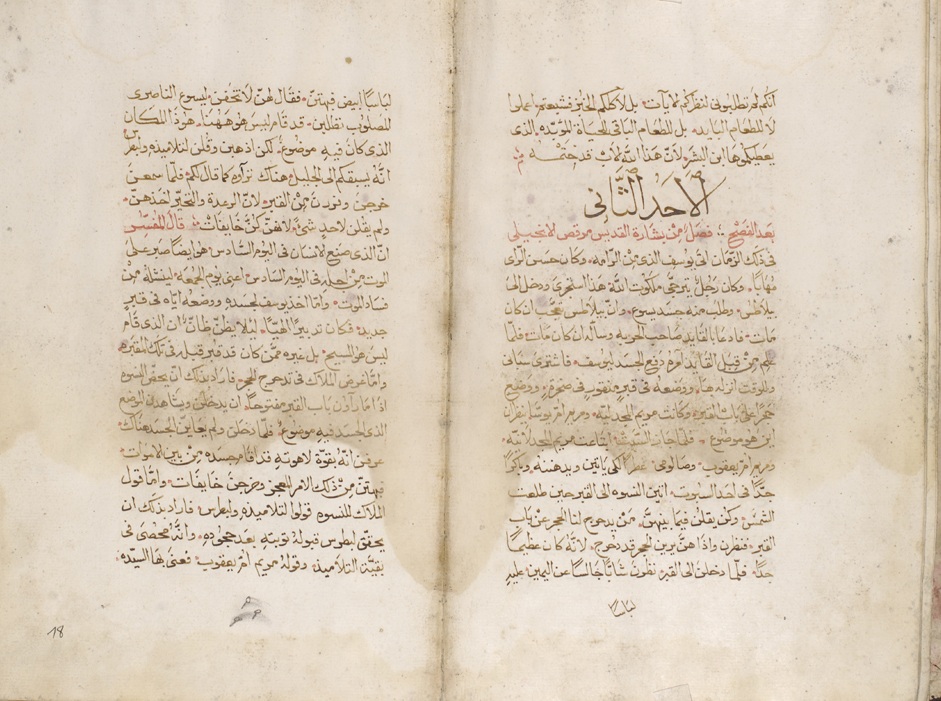 انكم لم تطلبوني لنظركم الايات بل لاكلكم الخبز فشبعتم اعملوا
لا للطعام البايد بل للطعام الباقي للحياة المؤبده الذي
يعطيكموها ابن البشر لان هذا الله الاب قد ختمه
الاحد الثاني
بعد الفصح فصل من بشارة القديس مرقص الانجيلي
في ذلك الزمان اتى يوسف الذي من الرامه وكان حسن الراى
مهابا وكان رجل يترجى ملكوت الله هذا استجرى ودخل الى
بيلاطس وطلب منه جسد يسوع وان بيلاطس تعجب ان كان
مات فادعا بالقايد صاحب الحربه وساله ان كان مات فلما
علم من قبل القايد امره بدفع الجسد ليوسف فاشترى سباني
وللوقت انزله ووضعه في قبر منقور في صخرة ووضع
حجرا على باب القبر وكانت مريم المجدليه ومريم ام يوسا ينظران
اين هو موضوع فلما جاز السبت ابتاعت مريم المجدلانيه
ومريم ام يعقوب وصالومي عطرا لكي ياتين ويدهننه وباكرا
جدا في احد السبوت اتين النسوه الى القبر حين طلعت
الشمس وكن يقلن فيما بينهن من يدحرج لنا الحجر عن باب
القبر فنظرن واذا هن يرين الحجر قد دحرج لانه كان عظيما
جدا فلما دخلن الى القبر نظرن شابا جالسا عن اليمين عليه
لباسا
لباسا ابيض فبهتن فقال لهن لا تخفن ليسوع الناصري
المصلوب تطلبن قد قام ليس هو ههنا هوذا المكان
الذي كان فيه موضوع لكن اذهبن وقلن لتلاميذه ولبطرس
انه يسبقكم الى الجليل هناك ترآوه كما قال لكم فلما سمعن
خرجن وفررن من القبر لان الرعدة والتحير اخذهن
ولم يقلن لاحد شي لانهن كن خايفات قال المفسر
ان الذي صنع الانسان في اليوم السادس هو ايضا صبر على
الموت من اجله في اليوم السادس اعني يوم الجمعه لينشله من
فساد الموت واما اخذ يوسف لجسده ووضعه اياه في قبر
جديد فكان تدبيرا الهيا ليلا يظن ظان ان الذي قام
ليس هو المسيح بل غيره ممن كان قد قبر قبله في تلك المقبره
واما غرض الملاك في تدحرج الحجر فاراد بذلك ان يحقق النسوه
اذا ما راون باب القبر مفتوحا ان يدخلن ويشاهدن الموضع
الذي الجسد فيه موضوع فلما دخلن ولم يعاين الجسد هناك
عرفن انه بقوة لاهوته قد اقام جسده من بين الاموات
فبهتن من ذلك الامر المعجز وخرجن خايفات واما قول
الملاك للنسوه قولوا لتلاميذه ولبطرس فاراد بذلك ان
يحقق لبطرس قبوله توبته بعد جحوده وانه محصى في
بقية التلاميذ وقوله مريم ام يعقوب فعنى بها السيده
18